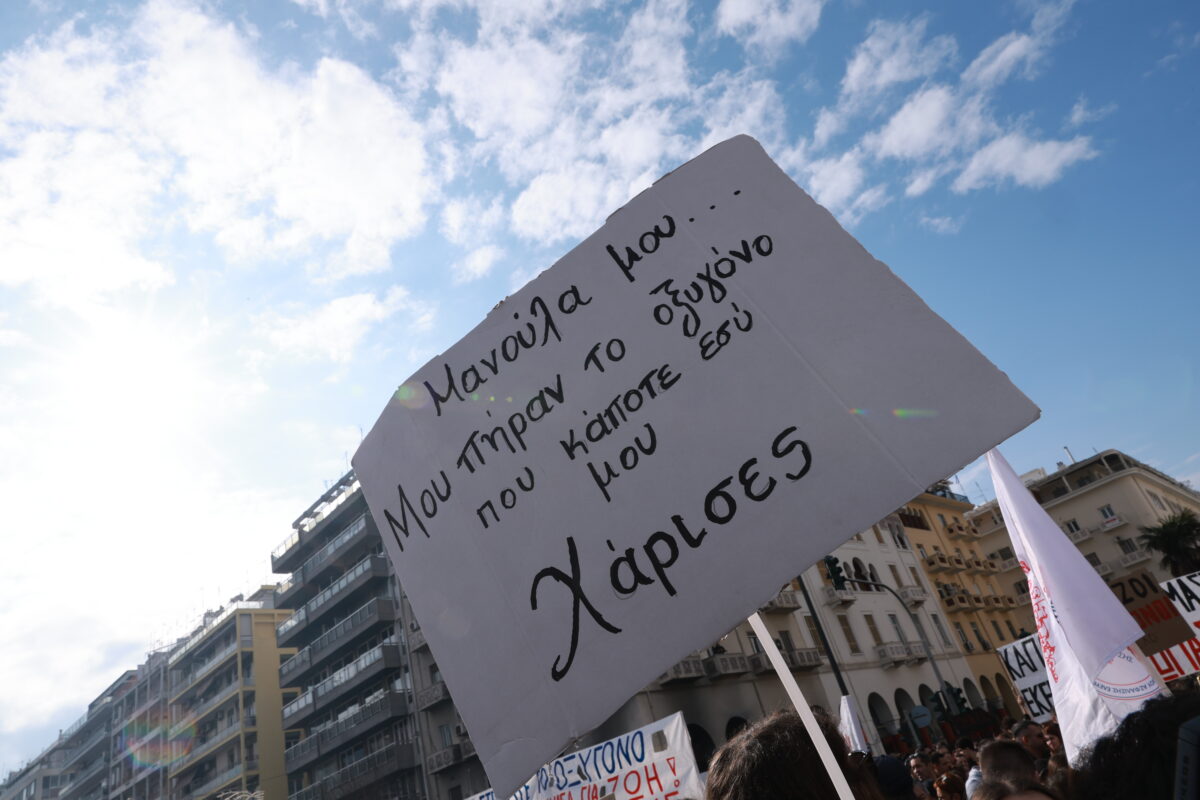 Μανούλα μου...
Μου πήραν το οξυγόνο
που κάποτε εσύ
μου
Χάρισες
ΟΞΥΓΟΝΟ
ΓΙΑ ΖΩΗ!
ΚΑΠ
ΕΚΕ
ΖΟΙ
ΜΑΣ